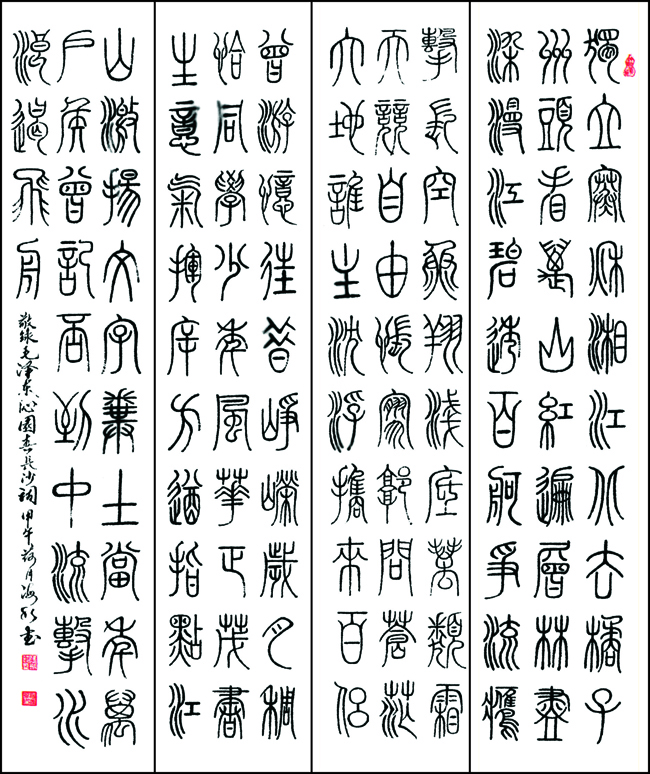 獨立寒秋湘江北去橘子
州頭看萬山紅遍層林盡
染漫江碧透百舸爭流鷹
擊長空魚翔淺底萬類霜
天競自由悵寥廓問蒼茫
大地誰主沈浮攜來百侶
曾游憶往昔崢嶸歲月稠
恰同學少年風華正茂書
生意氣揮斥方遒指點江
山激揚文字糞土當年萬
戶侯曾記否到中流擊水
浪遏飛舟
敬錄毛澤東沁園春長沙詞甲午荷月海書